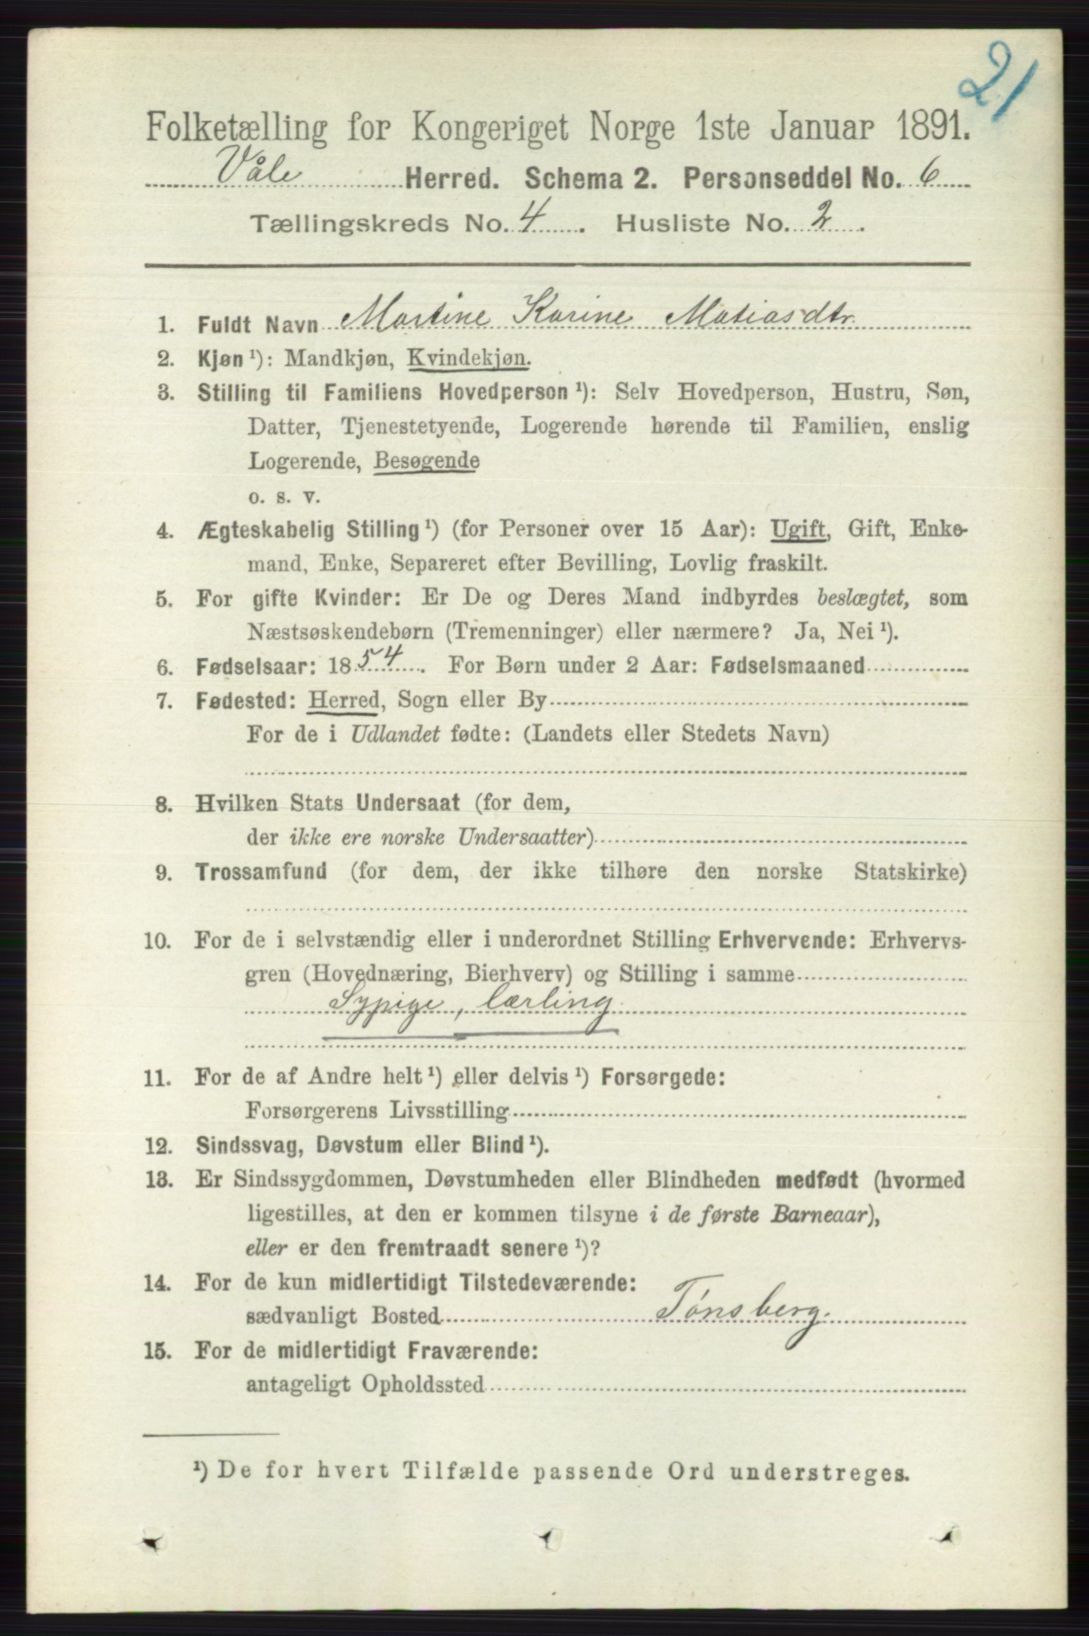 21
Folketælling for Kongeriget Norge 1ste Januar 1891.
Våle Herred. Schema 2. Personseddel No. 6
Tællingskreds No. 4. Husliste No. 2.
1. Fuldt Navn Martine Karine Matiasdtr.
2. Kjøn ¹): Mandkjøn, Kvindekjøn.
3. Stilling til Familiens Hovedperson ¹): Selv Hovedperson, Hustru, Søn,
Datter, Tjenestetyende, Logerende hørende til Familien, enslig
Logerende, Besøgende
o. s. v.
4. Ægteskabelig Stilling ¹) (for Personer over 15 Aar): Ugift, Gift, Enke-
mand, Enke, Separeret efter Bevilling, Lovlig fraskilt.
5. For gifte Kvinder: Er De og Deres Mand indbyrdes beslægtet, som
Næstsøskendebørn (Tremenninger) eller nærmere? Ja, Nei ¹).
6. Fødselsaar: 1854. For Børn under 2 Aar: Fødselsmaaned
7. Fødested: Herred, Sogn eller By
For de i Udlandet fødte: (Landets eller Stedets Navn)
8. Hvilken Stats Undersaat (for dem,
der ikke ere norske Undersaatter)
9. Trossamfund (for dem, der ikke tilhøre den norske Statskirke)
10. For de i selvstændig eller i underordnet Stilling Erhvervende: Erhvervs-
gren (Hovednæring, Bierhverv) og Stilling i samme
Sypige, lærling
11. For de af Andre helt ¹) eller delvis ¹) Forsørgede:
Forsørgerens Livsstilling
12. Sindssvag, Døvstum eller Blind ¹).
13. Er Sindssygdommen, Døvstumheden eller Blindheden medfødt (hvormed
ligestilles, at den er kommen tilsyne i de første Barneaar),
eller er den fremtraadt senere ¹)?
14. For de kun midlertidigt Tilstedeværende:
sædvanligt Bosted Tönsberg.
15. For de midlertidigt Fraværende:
antageligt Opholdssted
¹) De for hvert Tilfælde passende Ord understreges.